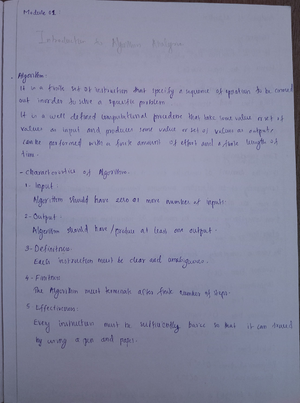 Module 01
Introduction to Algorithm Analysis
Algorithm:
It is a finite set of instruction that specify a sequence of operation to be carried
out inorder to solve a specific problem.
It is a well defined computational procedure that take some value or set of
values as input and produces some value or set of values as output.
can be performed with a finite amount of effort and a finite length of
time.
- Characteristics of Algorithm.
1- Input
Algorithm should have zero or more number of inputs.
2- Output
Algorithm should have / produce at least one output.
3- Definiteness
Each instruction must be clear and
4-
The Algorithm must terminate after finite number of steps.
5- Effectiveness
Every instruction must be sufficiently basic so that it can traced
by using a pen and paper.